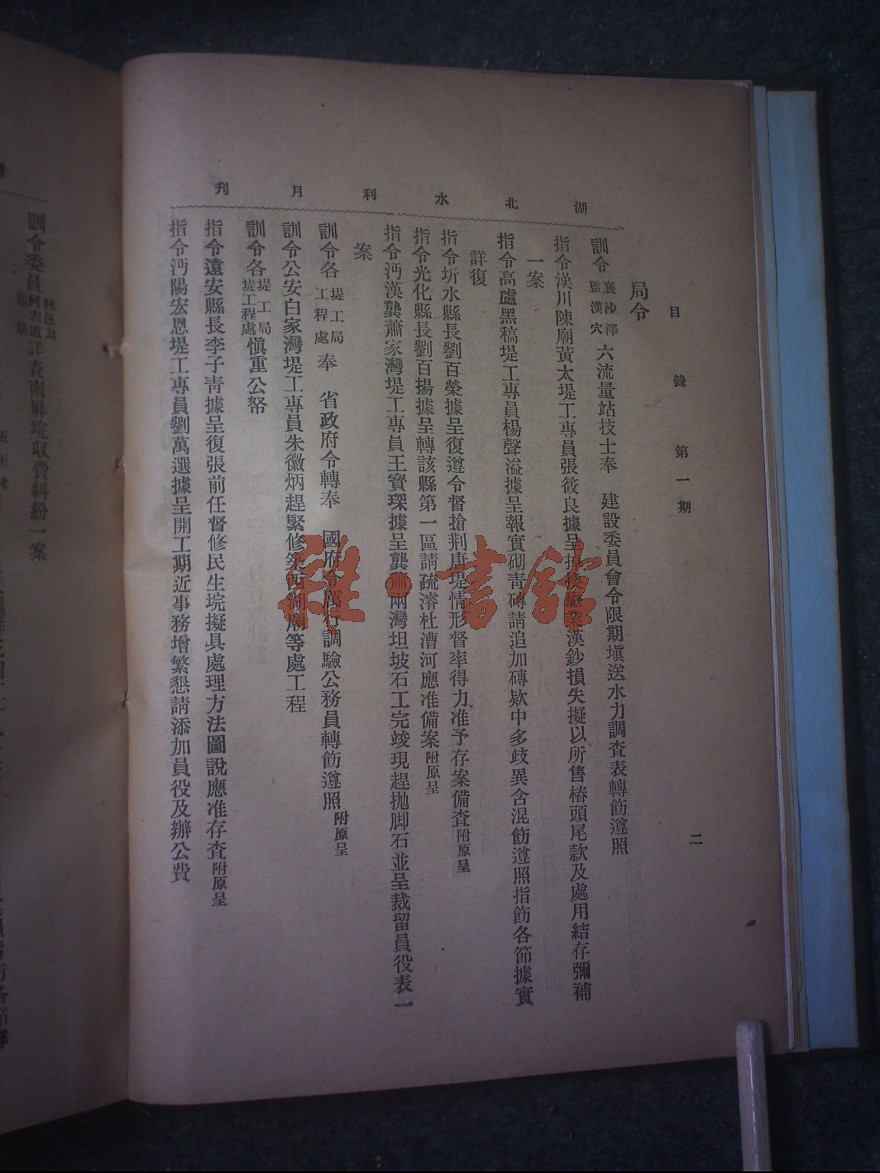 湖北水利月刊
目錄 第一期
二
局令
訓令襄沙澤鄂漢穴六流量站技士奉 建設委員會令限期填送水力調查表轉飭遵照
指令漢川陳廟黃太堤工專員張筱良據呈 漢鈔損失擬以所售樁頭尾款及處用結存彌補
一案
指令高盧黑稿堤工專員楊聲溢據呈報實砌靑磚請追加磚欵中多歧異含混飭遵照指飭各節據實
詳復
指令圻水縣長劉百榮據呈復遵令督搶荆唐堤情形督率得力准予存案備查附原呈
指令光化縣長劉百揚據呈轉該縣第一區請疏濬杜漕河應准備案附原呈
指令沔漢龔蕭家灣堤工專員王實琛據呈龔蕭兩灣坦坡石工完竣現趕拋脚石並呈裁留員役表一
案
訓令各堤工局工程處奉 省政府令轉奉 國府令厲行調驗公務員轉飭遵照附原呈
訓令公安白家灣堤工專員朱徽炳趕緊修築西湖廟等處工程
訓令各堤工局堤工程處愼重公帑
指令遠安縣長李子靑據呈復張前任督修民生垸擬具處理方法圖說應准存查附原呈
指令沔陽宏恩堤工專員劉萬選據呈開工期近事務增繁懇請添加員役及辦公費
訓令委員 柯志道 詳查南屏垸收費糾紛一案
雜·書館